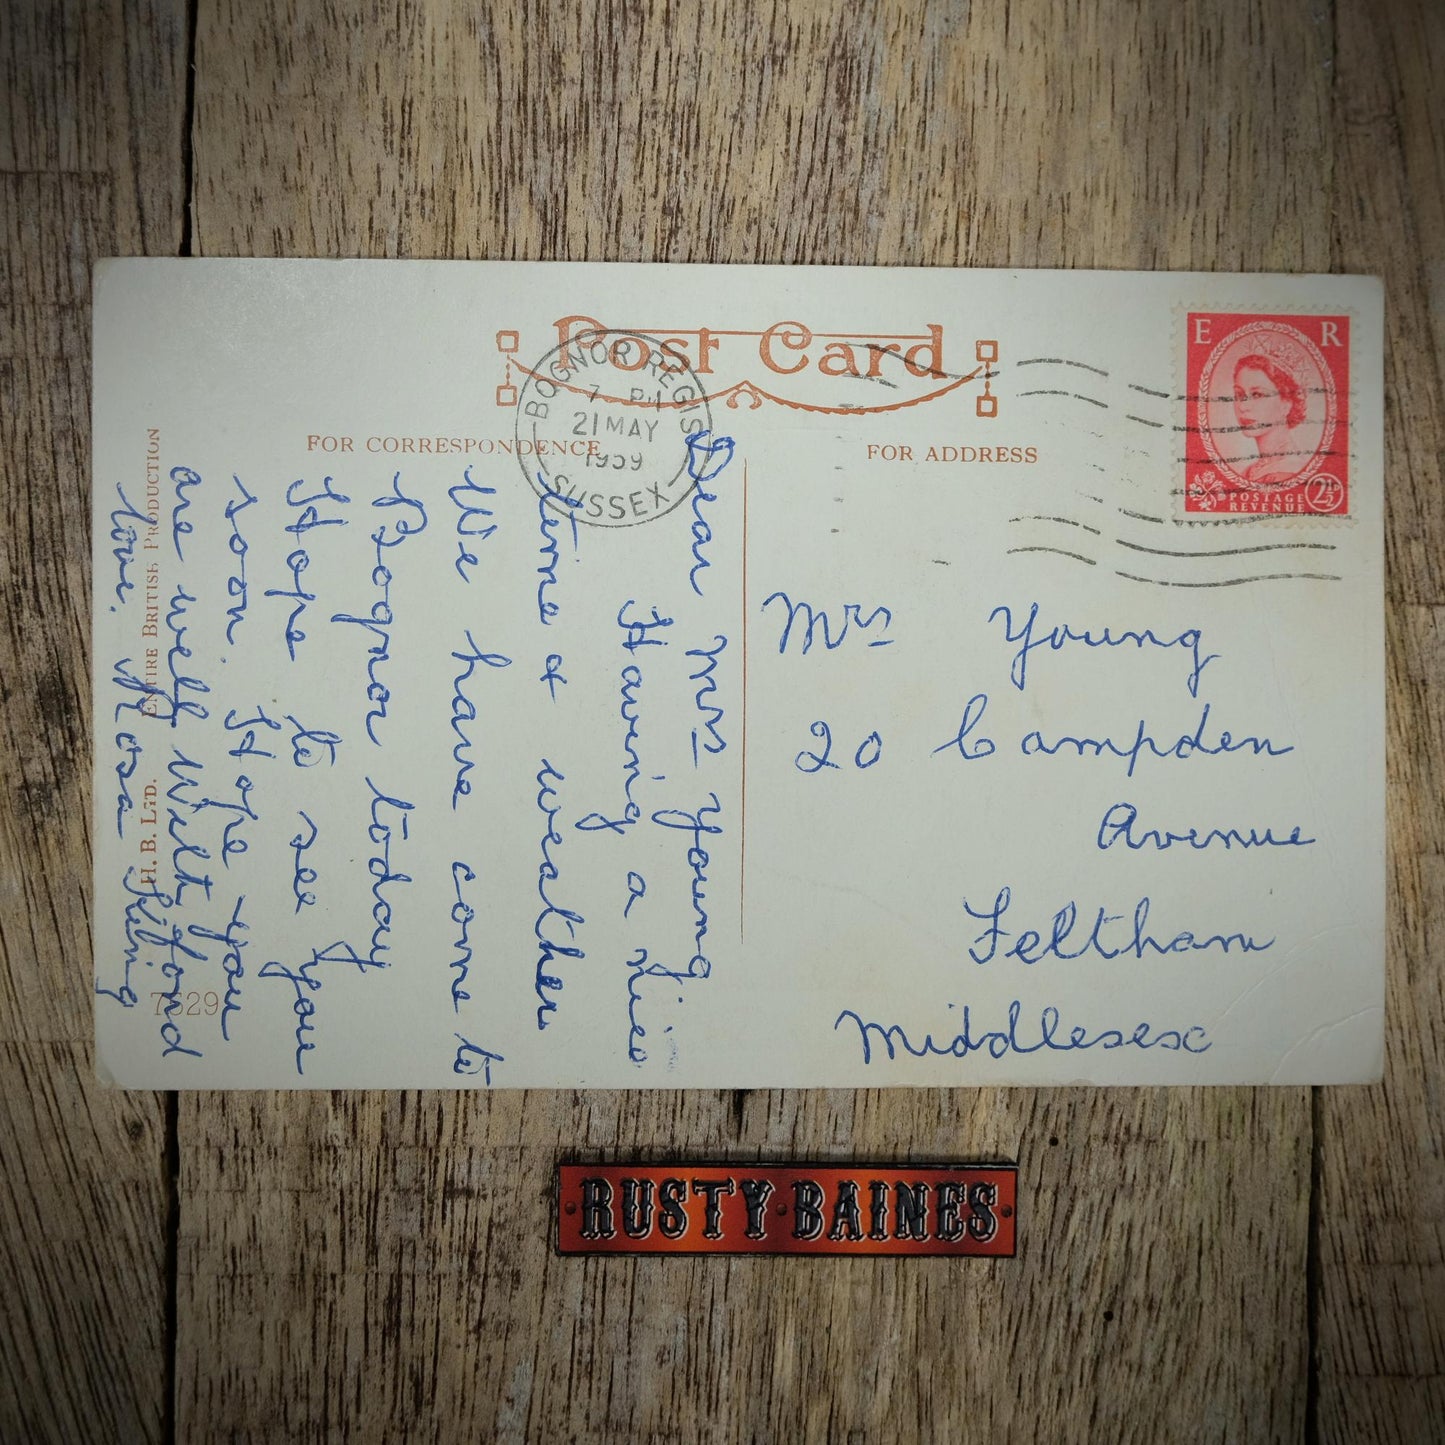 Post Card
BOGNOR REGIS
7 PM
21 MAY
1959
SUSSEX
E R
POSTAGE
REVENUE
2½D
FOR CORRESPONDENCE
FOR ADDRESS
Dear Mrs Young
Having a nice
time & weather
We have come to
Bognor today
Hope to see you
soon. Hope you
are well. With fond
love. Rosa King
Mrs Young
20 Campden
Avenue
Feltham
Middlesex
H. B. LTD. ENTIRE BRITISH PRODUCTION
7629
RUSTY·BAINES